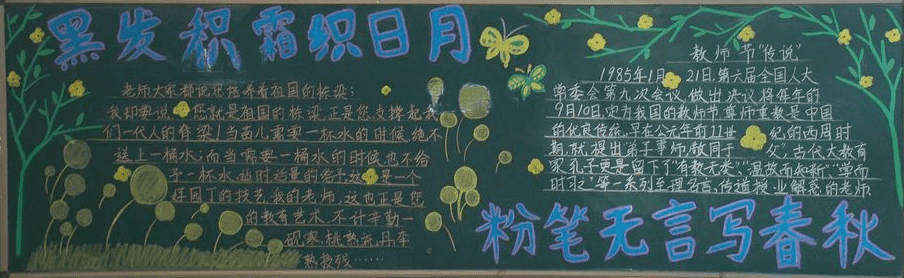 黑发积霜织日月
老师大家都说您培养着祖国的栋梁;
我却要说 您就是祖国的栋梁.正是您,支撑起我
们一代人的脊梁!当苗儿需要一杯水的时候,绝不
送上一桶水;而当需要一桶水的时候也不给
予一杯水,适时适量的给予,这 是一个
好园丁的技艺.我的老师,这也正是您
的教育艺术.不计辛勤一
砚寒,桃熟流丹,李
熟枝残……
教师节"传说"
1985年1月 21日,第六届全国人大
常委会第九次会议,做出决议将每年的
9月10日,定为我国的教师节.尊师重教是中国
的优良传统,早在公元前11世 纪的西周时
期,就提出"弟子事师,敬同于 父"古代大教育
家孔子更是留下了"有教无类"、"温故而知新"、"学而
时习之"等一系列至理名言,传道授业解惑的老师
粉笔无言写春秋